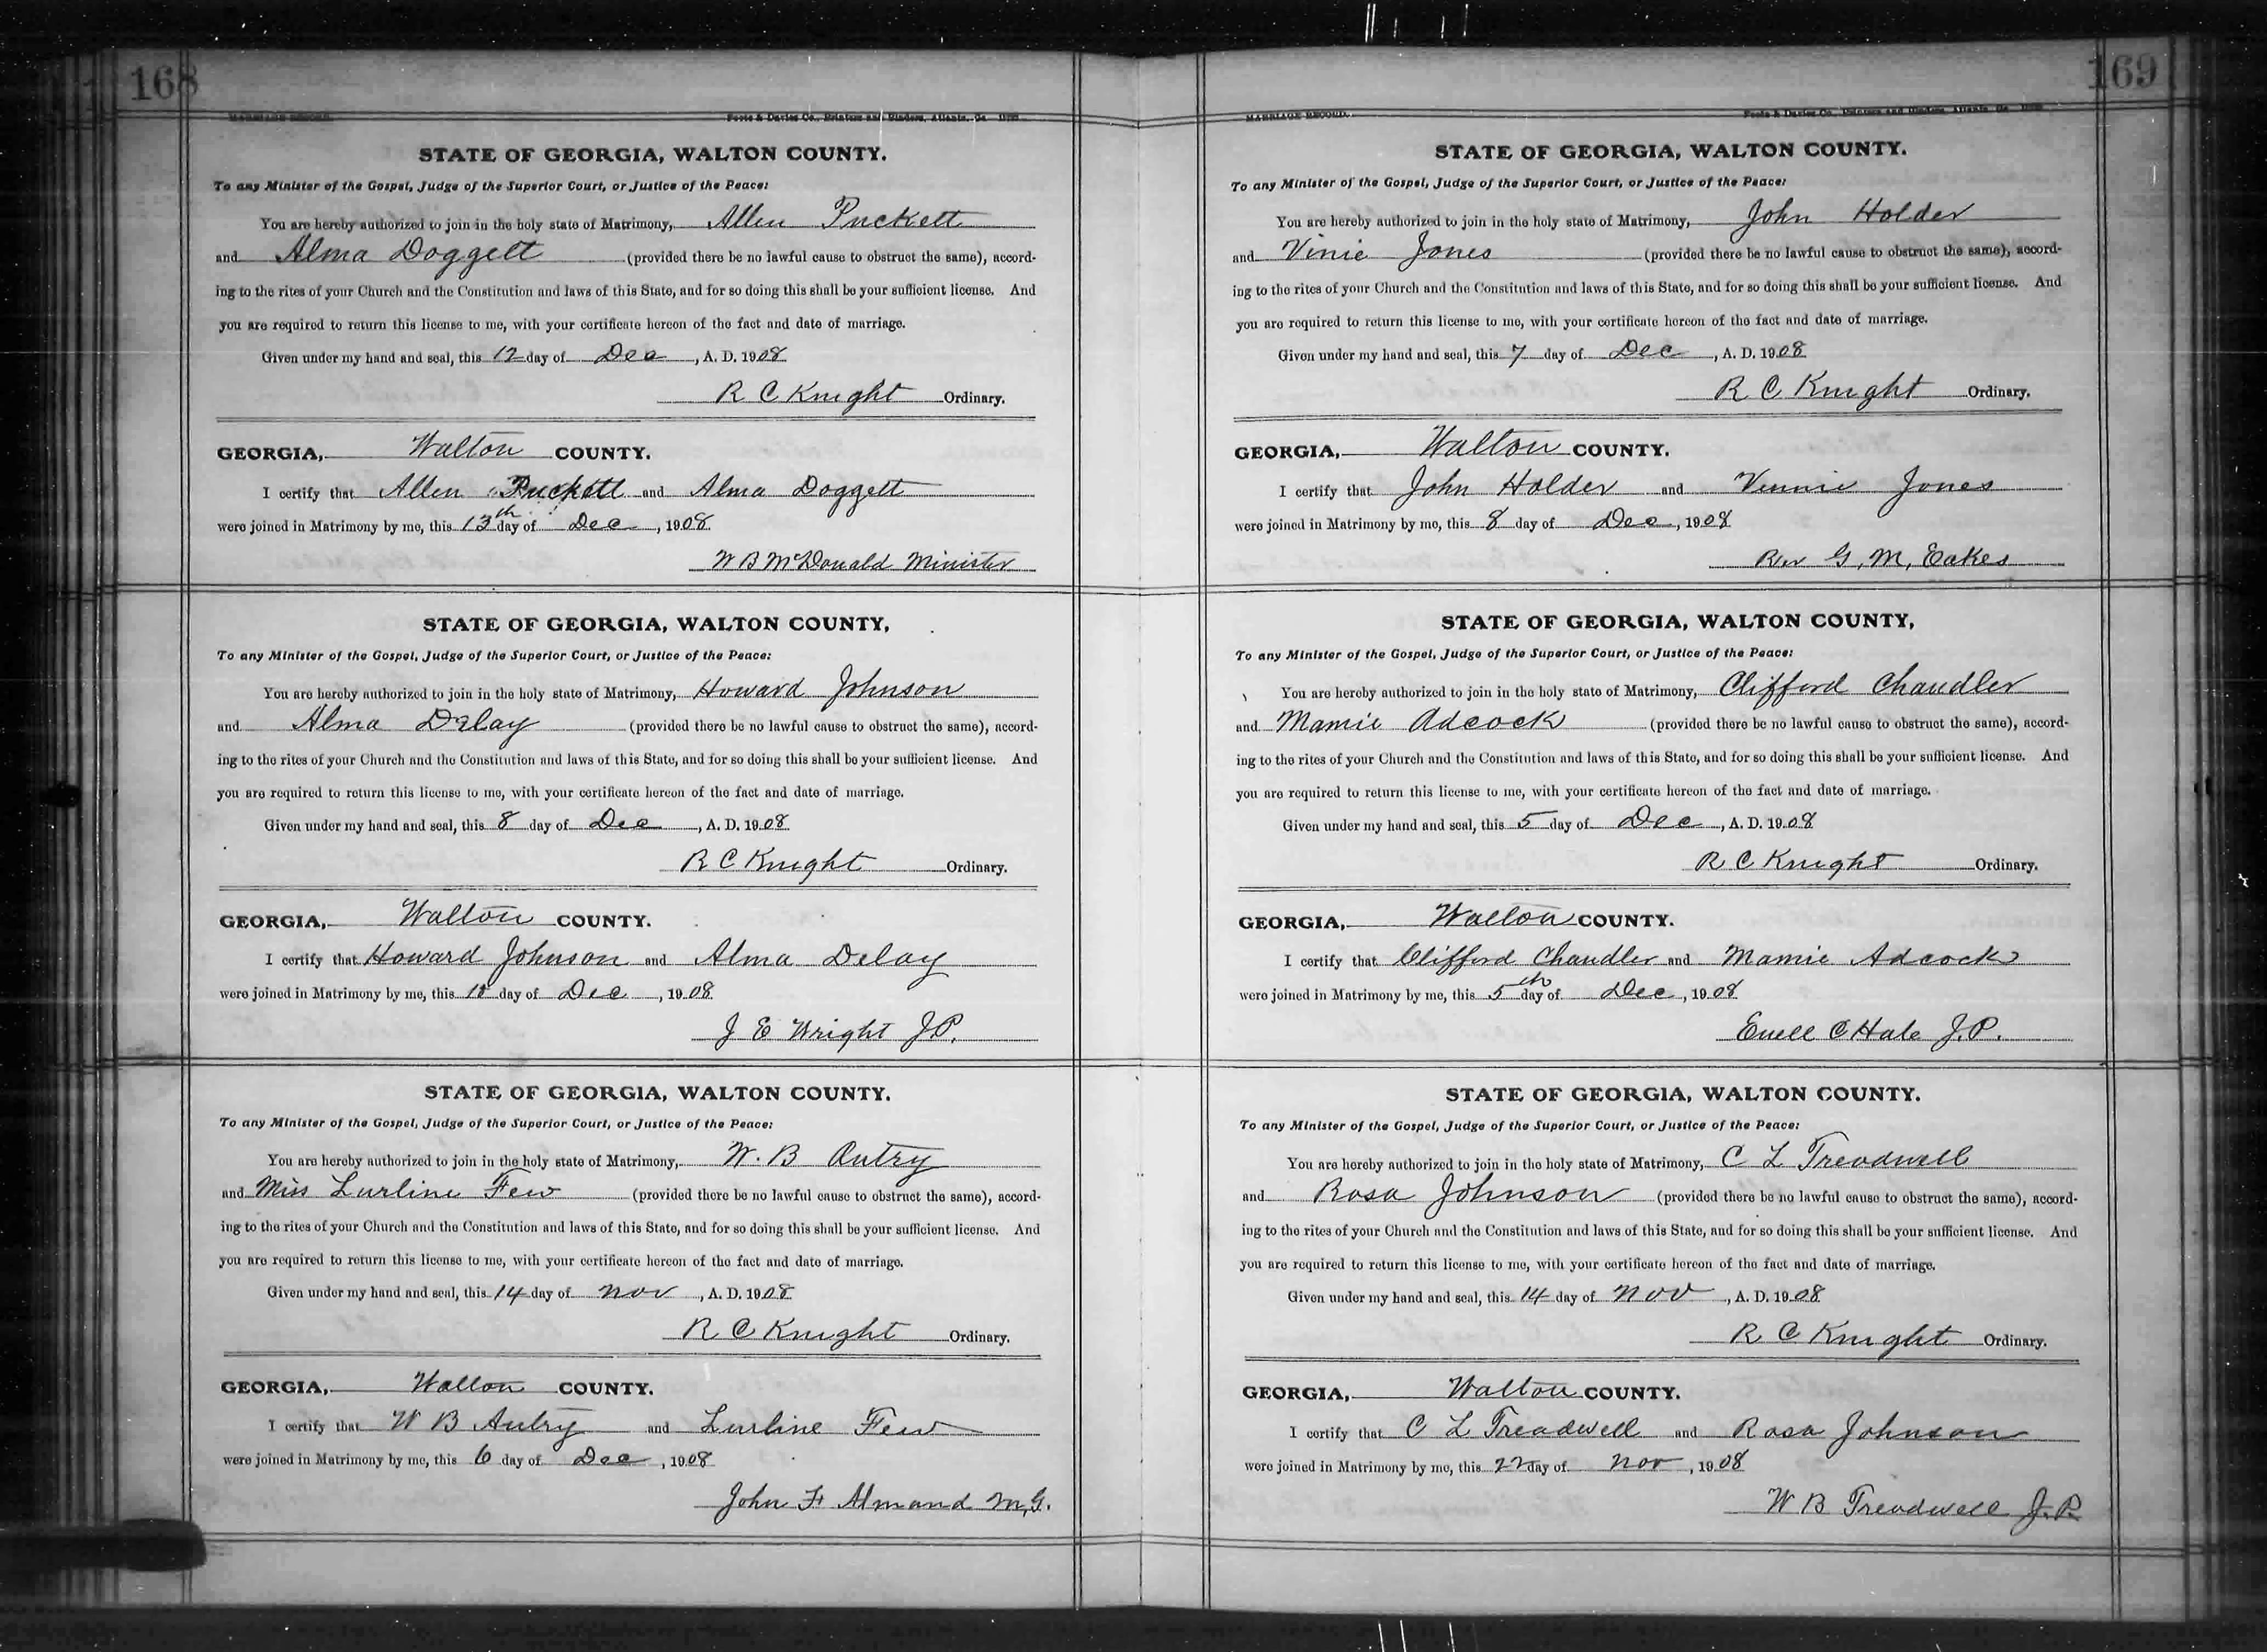 168
MARRIAGE RECORD.
Foote & Davies Co., Printers and Binders, Atlanta, Ga.
STATE OF GEORGIA, WALTON COUNTY.
To any Minister of the Gospel, Judge of the Superior Court, or Justice of the Peace:
You are hereby authorized to join in the holy state of Matrimony, Allen Puckett
and Alma Doggett (provided there be no lawful cause to obstruct the same), accord-
ing to the rites of your Church and the Constitution and laws of this State, and for so doing this shall be your sufficient license. And
you are required to return this license to me, with your certificate hereon of the fact and date of marriage.
Given under my hand and seal, this 12 day of Dec, A. D. 1908
R C Knight Ordinary.
GEORGIA, Walton COUNTY.
I certify that Allen Puckett and Alma Doggett
were joined in Matrimony by me, this 13th day of Dec, 1908
W B McDonald Minister
STATE OF GEORGIA, WALTON COUNTY,
To any Minister of the Gospel, Judge of the Superior Court, or Justice of the Peace:
You are hereby authorized to join in the holy state of Matrimony, Howard Johnson
and Alma Delay (provided there be no lawful cause to obstruct the same), accord-
ing to the rites of your Church and the Constitution and laws of this State, and for so doing this shall be your sufficient license. And
you are required to return this license to me, with your certificate hereon of the fact and date of marriage.
Given under my hand and seal, this 8 day of Dec, A. D. 1908
R C Knight Ordinary.
GEORGIA, Walton COUNTY.
I certify that Howard Johnson and Alma Delay
were joined in Matrimony by me, this day of Dec, 1908
J E Wright J.P.
STATE OF GEORGIA, WALTON COUNTY.
To any Minister of the Gospel, Judge of the Superior Court, or Justice of the Peace:
You are hereby authorized to join in the holy state of Matrimony, W. B Autry
and Miss Lurline Few (provided there be no lawful cause to obstruct the same), accord-
ing to the rites of your Church and the Constitution and laws of this State, and for so doing this shall be your sufficient license. And
you are required to return this license to me, with your certificate hereon of the fact and date of marriage.
Given under my hand and seal, this 14 day of Nov, A. D. 1908
R C Knight Ordinary.
GEORGIA, Walton COUNTY.
I certify that W B Autry and Lurline Few
were joined in Matrimony by me, this 6 day of Dec, 1908
John F Almand M,G.
169
MARRIAGE RECORD.
Foote & Davies Co., Printers and Binders, Atlanta, Ga.
STATE OF GEORGIA, WALTON COUNTY.
To any Minister of the Gospel, Judge of the Superior Court, or Justice of the Peace:
You are hereby authorized to join in the holy state of Matrimony, John Holder
and Vinie Jones (provided there be no lawful cause to obstruct the same), accord-
ing to the rites of your Church and the Constitution and laws of this State, and for so doing this shall be your sufficient license. And
you are required to return this license to me, with your certificate hereon of the fact and date of marriage.
Given under my hand and seal, this 7 day of Dec, A. D. 1908
R C Knight Ordinary.
GEORGIA, Walton COUNTY.
I certify that John Holder and Vennie Jones
were joined in Matrimony by me, this 8 day of Dec, 1908
Rev G, M, Eakes
STATE OF GEORGIA, WALTON COUNTY,
To any Minister of the Gospel, Judge of the Superior Court, or Justice of the Peace:
You are hereby authorized to join in the holy state of Matrimony, Clifford Chandler
and Mamie Adcock (provided there be no lawful cause to obstruct the same), accord-
ing to the rites of your Church and the Constitution and laws of this State, and for so doing this shall be your sufficient license. And
you are required to return this license to me, with your certificate hereon of the fact and date of marriage.
Given under my hand and seal, this 5 day of Dec, A. D. 1908
R C Knight Ordinary.
GEORGIA, Walton COUNTY.
I certify that Clifford Chandler and Mamie Adcock
were joined in Matrimony by me, this 5th day of Dec, 1908
C Hale J.P.
STATE OF GEORGIA, WALTON COUNTY.
To any Minister of the Gospel, Judge of the Superior Court, or Justice of the Peace:
You are hereby authorized to join in the holy state of Matrimony, C L Treadwell
and Rosa Johnson (provided there be no lawful cause to obstruct the same), accord-
ing to the rites of your Church and the Constitution and laws of this State, and for so doing this shall be your sufficient license. And
you are required to return this license to me, with your certificate hereon of the fact and date of marriage.
Given under my hand and seal, this 14 day of Nov, A. D. 1908
R C Knight Ordinary.
GEORGIA, Walton COUNTY.
I certify that C L Treadwell and Rosa Johnson
were joined in Matrimony by me, this 22 day of Nov, 1908
W B Treadwell J.P.